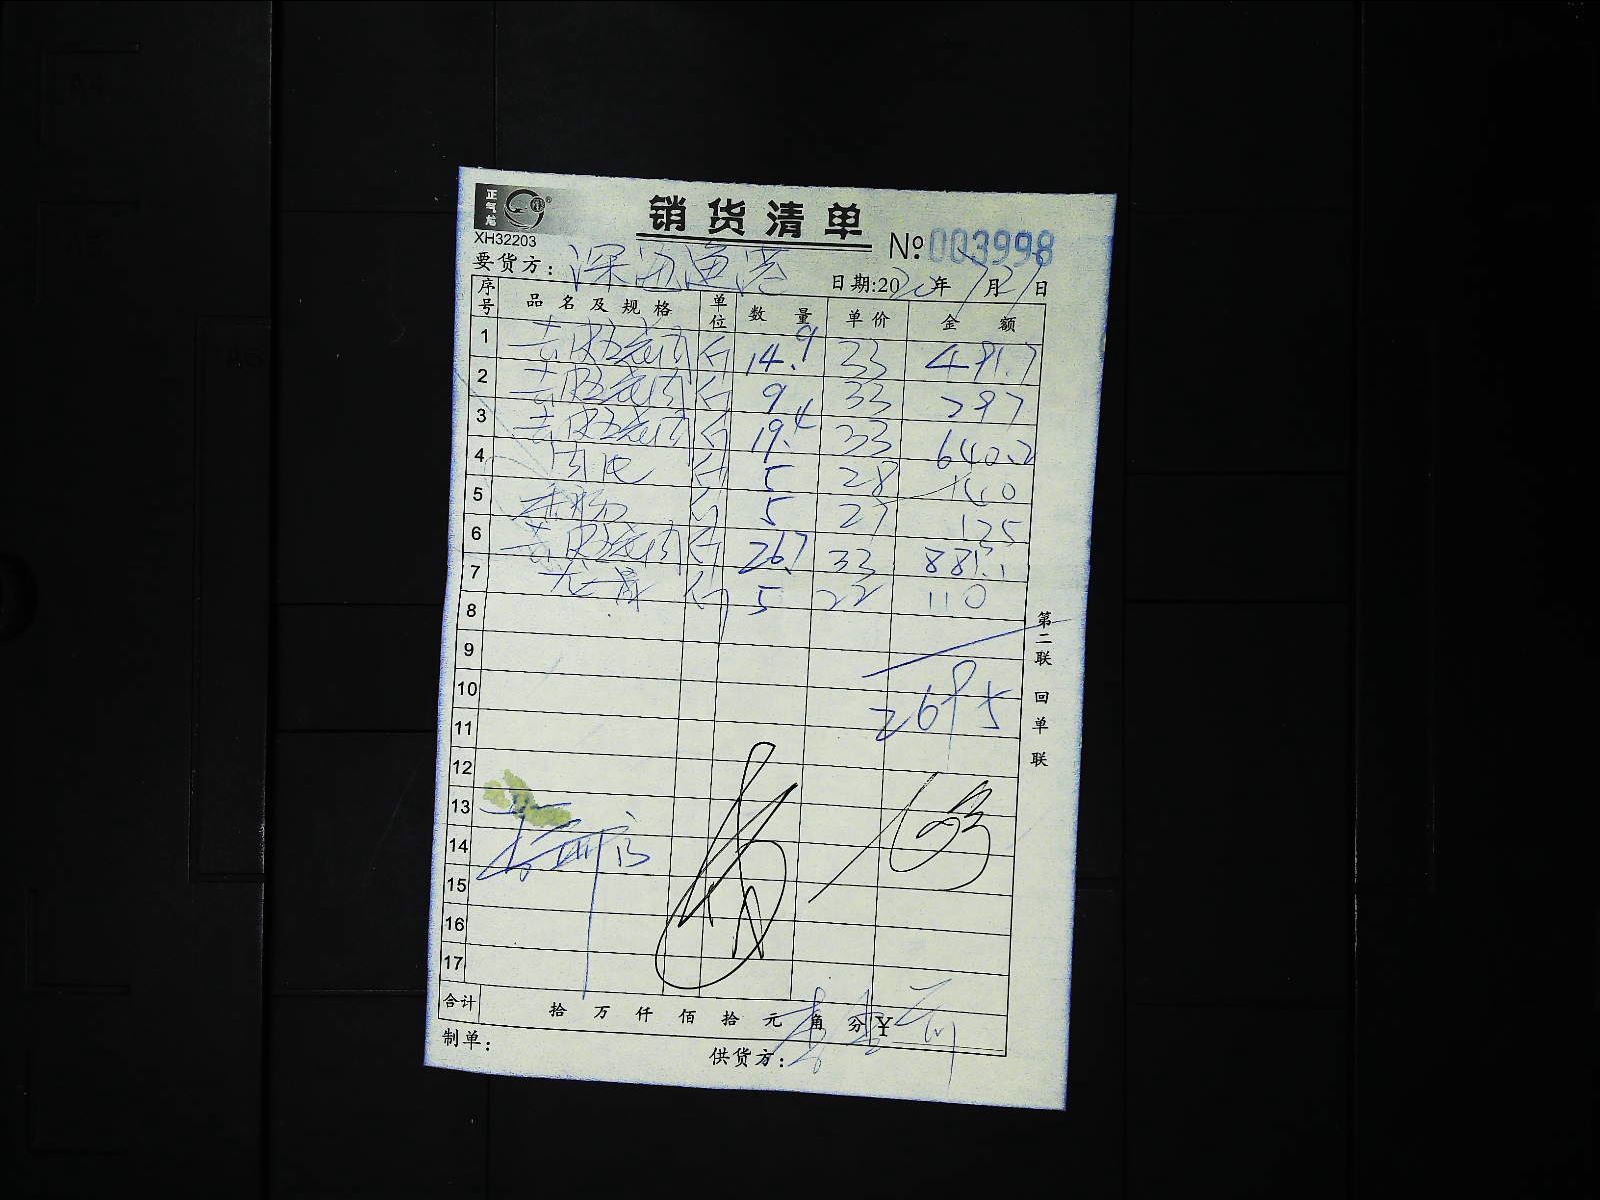 正气龙
销货清单
XH32203
№003998
要货方：深海渔港
日期:2020年7月27日
序号 品名及规格 单位 数量 单价 金额
1 去皮五花肉 斤 14.9 33 491.7
2 去皮五花肉 斤 9 33 297
3 去皮五花肉 斤 19.4 33 640.2
4 斤 5 28 140
5 斤 5 27 135
6 去皮五花肉 斤 26.7 33 881.1
7 斤 5 22 110
8
9
10 2695
11
12
13
14
15
16
17
合计 拾 万 仟 佰 拾 元 角 分 ¥
制单：
供货方：
第二联 回单联